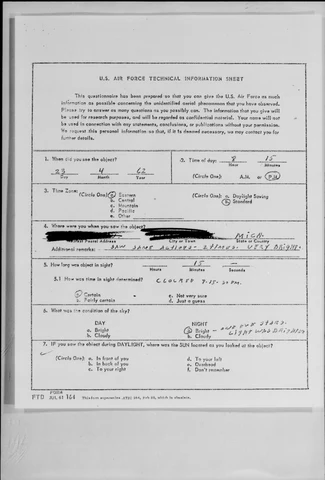 U. S. AIR FORCE TECHNICAL INFORMATION SHEET
This questionnaire has been prepared so that you can give the U.S. Air Force as much
information as possible concerning the unidentified aerial phenomenon that you have observed.
Please try to answer as many questions as you possibly can. The information that you give will
be used for research purposes, and will be regarded as confidential material. Your name will not
be used in connection with any statements, conclusions, or publications without your permission.
We request this personal information so that, if it is deemed necessary, we may contact you for
further details.
1. When did you see the object?
23 4 62
Day Month Year
2. Time of day: 8 15
Hour Minutes
(Circle One): A.M. or P.M.
3. Time Zone:
(Circle One): a. Eastern
b. Central
c. Mountain
d. Pacific
e. Other
(Circle One): a. Daylight Saving
b. Standard
4. Where were you when you saw the object?
MICH.
Nearest Postal Address City or Town State or Country
Additional remarks: VERY BRIGHT
5. How long was object in sight? 15
Hours Minutes Seconds
5.1 How was time in sight determined?
a. Certain c. Not very sure
b. Fairly certain d. Just a guess
6. What was the condition of the sky?
DAY NIGHT
a. Bright a. Bright
b. Cloudy b. Cloudy
7. IF you saw the object during DAYLIGHT, where was the SUN located as you looked at the object?
(Circle One): a. In front of you d. To your left
b. In back of you e. Overhead
c. To your right f. Don't remember
FTD FORM 164
This form supersedes